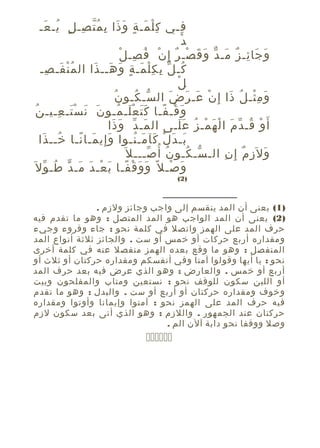 فِـي كِلْمَـةٍ وَذَا يمُتَّصِـلٍ يُـعَـ
دّ
وَجَائِـزٌ مَـدٌّ وَقَصْـرٌ إِنْ فُصِـلْ
كُـلٌّ بِكِلْمَـةٍ وَهَــذَا المُنْفَـصِـ
لْ
وَمِثْـلُ ذَا إِنْ عَـرَضَ السُّـكُـونُ
وَقْـفًـا كَتَعْلَـمُـونَ نَسْتَـعِـيـنُ
أَوْ قُـدِّمَ الْهَمْـزُ عَلَـى المَـدِّ وَذَا
بَـدَلْ كَآمَـنُـوا وَإِيمَـانًـا خُــذَا
وَلاَزِمٌ إِنِ الـسُّـكُـونُ أُصِّـــلاَ
وَصْـلاً وَوَقْفًـا بَعْـدَ مَـدٍّ طُـوِّلاَ
(2)
(1) يعنى أن المد ينقسم إلى واجب وجائز ولازم .
(2) يعنى أن المد الواجب هو المد المتصل : وهو ما تقدم فيه
حرف المد على الهمز واتصلا في كلمة نحو : جاء وقروء وجيء
ومقداره أربع حركات أو خمس أو ست . والجائز ثلاثة أنواع المد
المنفصل : وهو ما وقع بعده الهمز منفصلا عنه في كلمة أخرى
نحو : يا أيها وقولوا آمنا وفي أنفسكم ومقداره حركتان أو ثلاث أو
أربع أو خمس . والعارض : وهو الذي عرض فيه بعد حرف المد
أو اللين سكون للوقف نحو : نستعين ومتاب والمفلحون وبيت
وخوف ومقداره حركتان أو أربع أو ست . والبدل : وهو ما تقدم
فيه حرف المد على الهمز نحو : آمنوا وإيمانا وأوتوا ومقداره
حركتان عند الجمهور . واللازم : وهو الذي أتى بعد سكون لازم
وصلا ووقفا نحو دابة آلآن الم .